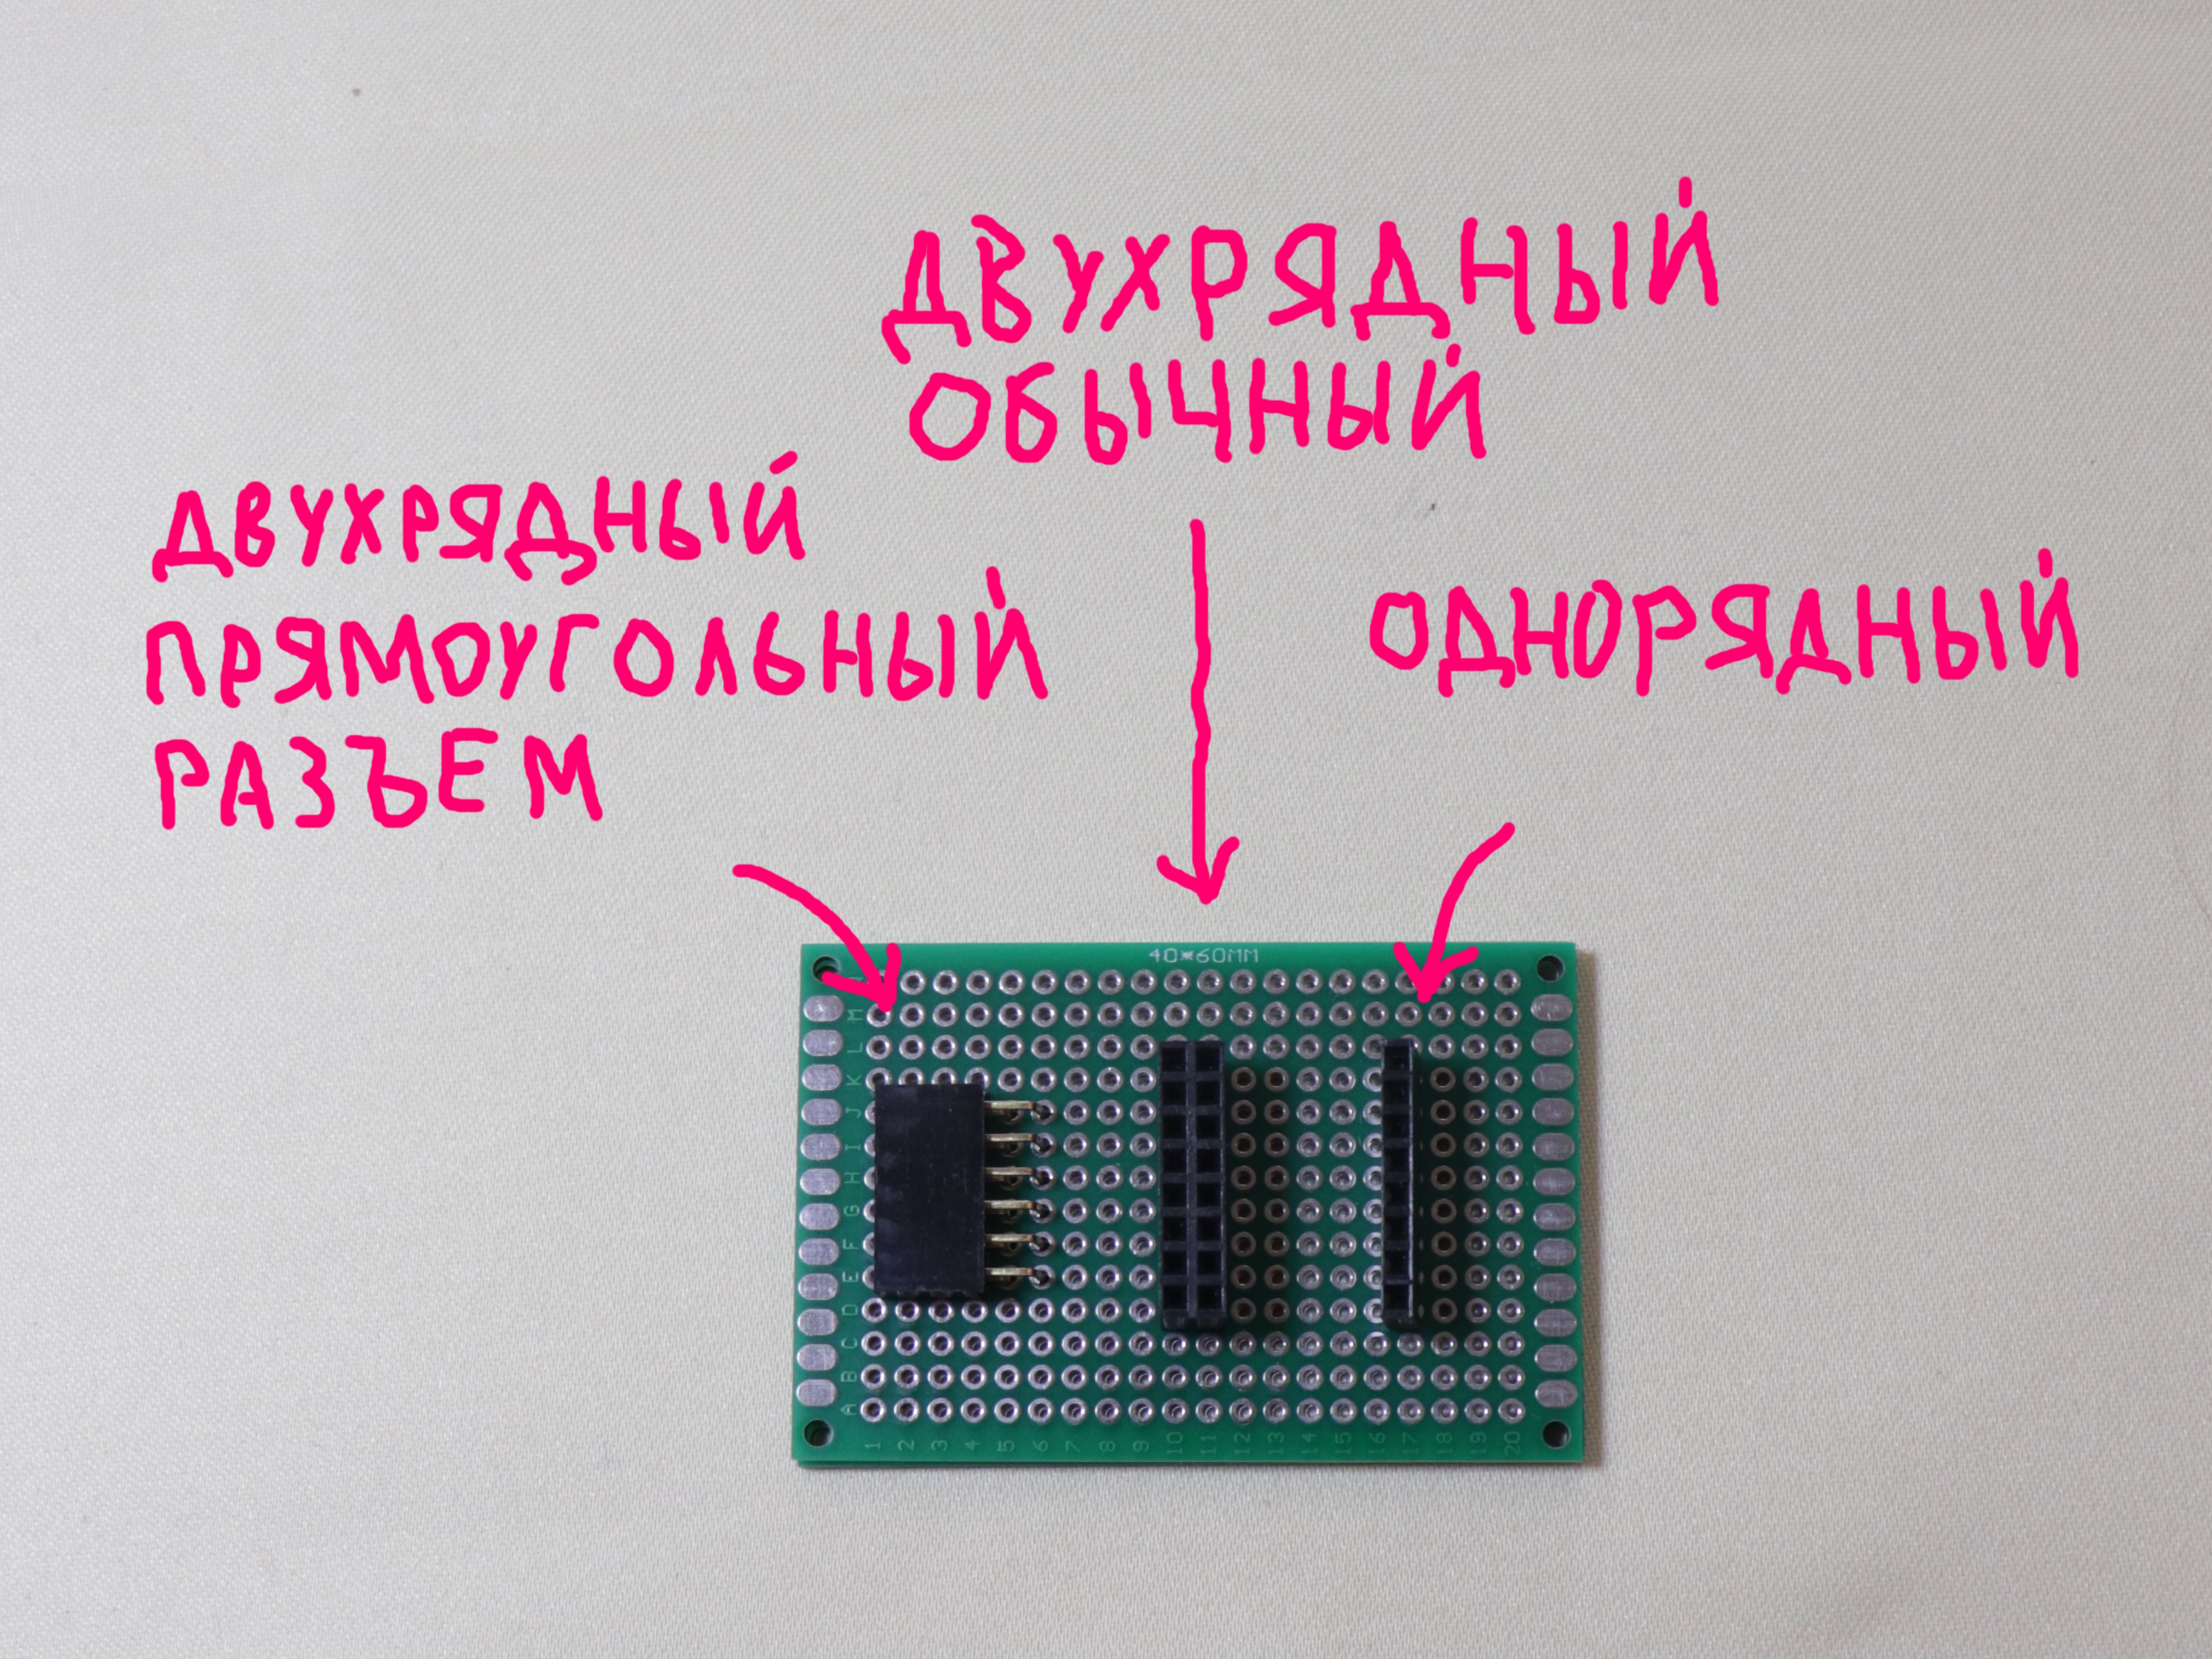 ДВУХРЯДНЫЙ
ОБЫЧНЫЙ
ДВУХРЯДНЫЙ
ПРЯМОУГОЛЬНЫЙ
РАЗЪЕМ
ОДНОРЯДНЫЙ
40*60MM
M
L
K
J
I
H
G
F
E
D
C
B
A
1 2 3 4 5 6 7 8 9 10 11 12 13 14 15 16 17 18 19 20